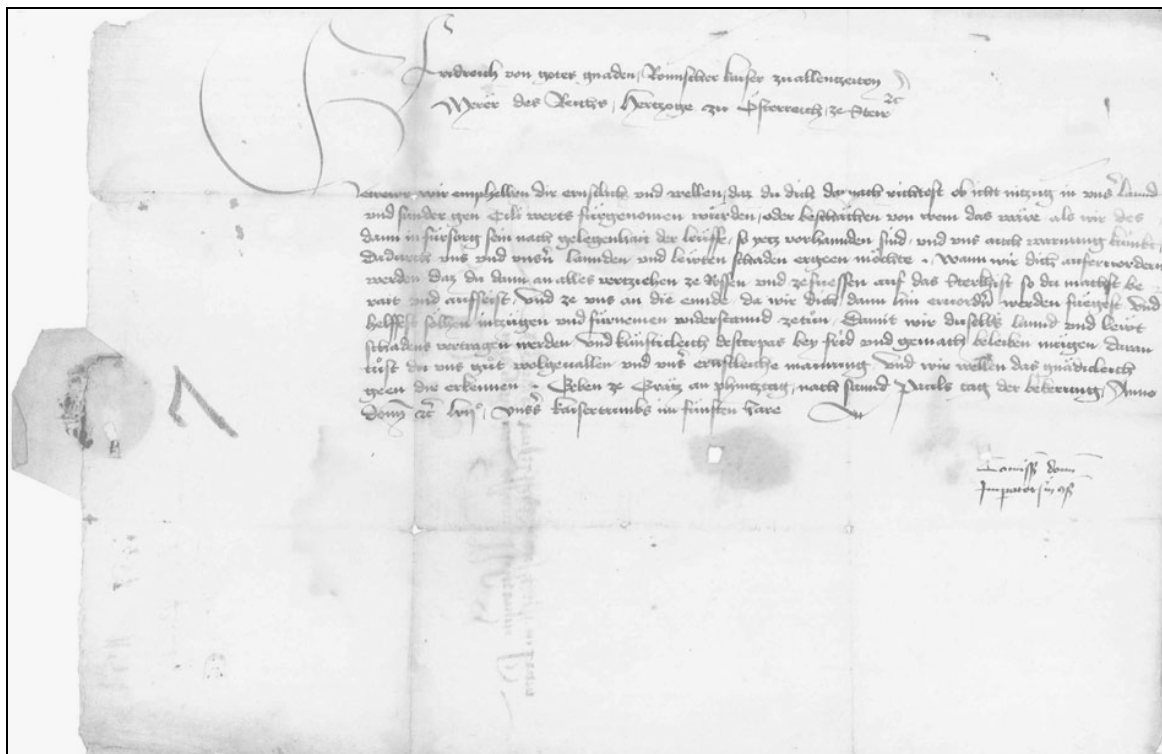 Fridreich von gotes gnaden, Romischer kaiser zuallenczeiten
Merer des Reichs, Herczoge zu Österreich, ze Steir etc
Getrewr wir emphelhen dir ernstlich und wellen, daz du dich darnach richtest ob icht inczüg in unsr Lannd
und sunder gen Cili werts fürgenomen würden, oder beschächen von wem das wäre als wir des
dann in fürsorg sein nach gelegenhait der leuffe, so yecz vorhannden sind, und uns auch warnung kümbt,
dadurch uns und unsrn Lannden und lewten schaden ergeen möchte. Wann wir dich anfervordern
werden daz du dann an alles verziehen ze Rossen und zefuessen auf das Sterkhist so du machst be
rait und auffseist, und ze uns an die ennde, da wir dich dann hin ervordrn werden fuegest und
helffest solhen inczügen und fürnemen widerstannd zetün, Damit wir dieselben lannd und lewt
schadens vertragen werden und künfticleich desterpas bey frid und gemach beleiben mügen, daran
tust du uns gut wolgevallen und unsr ernstleiche maynung, und wir wellen das gnädicleich
geen dir erkennen. Geben ze Grätz an phincztag, nach sannd Pauls tag der bekerung, Anno
domi etc lvijo, unsrs kaisertumbs im fünften Jare
Comissio domi
Imperatoris in cons